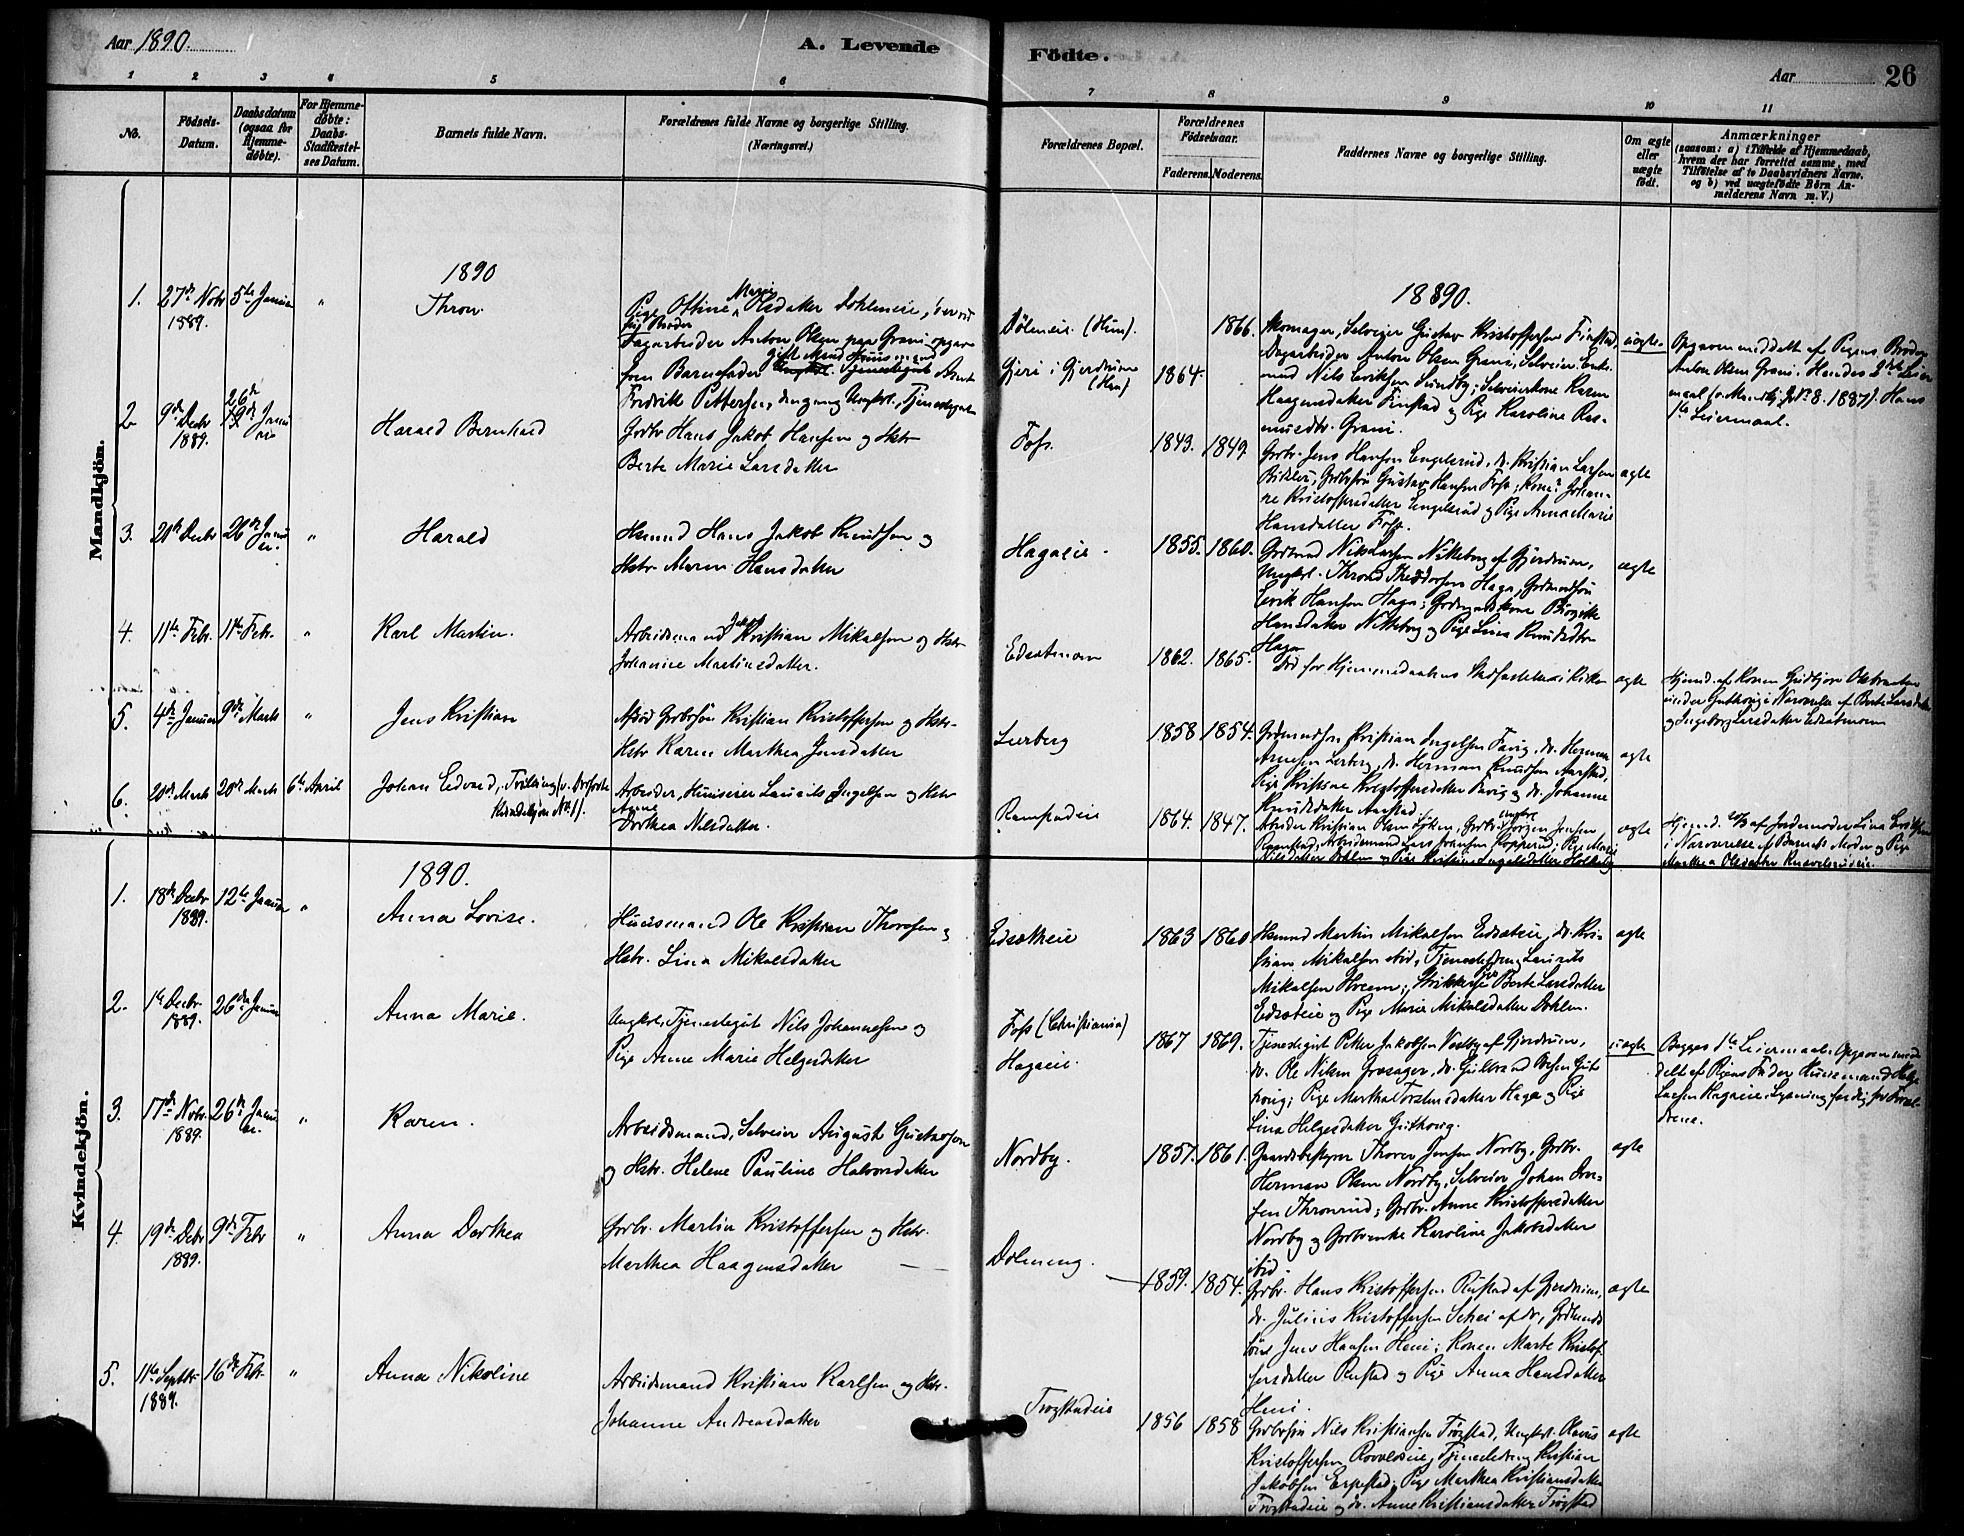 Aar 1890.
A. Levende
Födte.
Aar
26
1
2
3
4
5
6
7
8
9
10
11
No.
Födsels-
Datum.
Daabsdatum
(ogsaa for
Hjemme-
döbte).
For Hjemme-
døbte:
Daabs-
Stadfæstel-
ses Datum.
Barnets fulde Navn.
Forældrenes fulde Navne og borgerlige Stilling.
(Næringsvei.)
Forældrenes Bopæl.
Forældrenes
Födselsaar.
Faderens.
Moderens.
Faddernes Navne og borgerlige Stilling.
Om ægte
eller
uægte
födt.
Anmærkninger
(saasom: a) i Tilfælde af Hjemmedaab,
hvem der har forrettet samme, med
Tilføielse af to Daabsvidners Navne.
og b) ved uægtefödte Börn An-
melderens Navn m. V.)
Mandkjön.
1890
18890.
1.
27de Novbr
1889.
5te Januar
"
Thron.
Pige Ottine Marie Olsdatter Dohleneie,
Anton Olsen paa Grani opgav
som Barnefader
Fredrik Pettersen,
Dølneie. (Hun).
Gjeri i Gjerdrum
(Han)
1864.
1866.
Skomager, Selveier Gustav Kristoffersen Finstad,
Dagarbeider Anton Olsen Grani, Selveier Enke-
mand Nils Eriksen Sundby; Selveierkone Karen
Haagensdatter Finstad og Pige Karoline Ras-
musdtr. Grani.
uægte
Opgaven meddelt af Pigens Broder
Anton Olsen Grani. Hendes 2det Leier
maal (s. Mandkj. No 8. 1887). Hans
1te Leiermaal.
2
9de Decbr
1889.
26de Januar
Harald Bernhard
Grdbr Hans Jakob Hansen og Hstr
Berte Marie Larsdatter
Foss.
1843.
1849
Grdbr. Jens Hansen Engelsrud, do. Kristian Larsen
Gustav Hansen Foss; Kone Johan-
ne Kristoffersdatter Engelsrud og Pige Anna Marie
Hansdatter Foss.
ægte
3.
20de Decbr
26de Januar
"
Harald
Hsmnd Hans Jakob Knudsen og
Hstr Maren Hansdatter
Hagaeie.
1855.
1860.
Grdmnd Nils Larsen Nitteberg af Gjerdrum,
Ungkrl. Thrond Theodorsen Haga, Grdmndsøn
Erik Hansen Haga; Grdmandskone Birgitte
Hansdatter Nitteberg og Pige Lina Knudsdtr
Haga
ægte
4.
11te Febr.
11te Febr.
"
Karl Martin.
Arbeidsmand Kristian Mikalsen og Hstr
Johanne Martinsdatter.
Edsatmoen
1862.
1865.
Død før Hjemmedaabens Stadfæstelse i Kirken
ægte
Hjemd. af Konen Gudbjør Olsbraaten
i Nærværelse af Berte Larsdatter
og Ingeborg Larsdatter Edsatmoen
5.
4de Januar
9de Marts
"
Jens Kristian
Afdød Grdbrsøn Kristian Kristoffersen og Hstr.
Hstr Karen Marthea Jensdatter
Lerberg
1858
1854.
Grdmndssøn Kristian Ingelsen Favig, do. Herman
Arnesen Lerberg, do. Herman Knudsen Aarstad,
Pige Kristine Kristoffersdatter Favig og do. Johanne
Knudsdatter Aarstad.
ægte
6.
20de Marts
20de Marts
6te April
Johan Edvard, Tvilling
Kvindekjøn No 11).
Arbeider, Huuseier Laurits Ingelsen og Hstr
Anne
Dorthea Nilsdatter.
Ramstadeie
1864.
1847.
Arbeider Kristian Olsen Løken, Grdbr. Jørgen Jensen
Ramstad, Arbeidsmand Lars Johansen Kopperud; Pige Marie
Nilsdatter Dohlen og Pige Kristine Ingelsdatter Holtberg
ægte
Hjemd. af Jordemoder Lina Eriksen
i Nærværelse af Barnets Moder og Pige
Marthea Olsdatter
Kvindekjön.
1890.
1.
18de Decbr
1889.
12te Januar
"
Anna Lovise.
Huusmand Ole Kristian Thorersen og
Hstr. Lina Mikalsdatter
Edsatteie
1863
1860
Hsmnd Martin Mikalsen Edsateie, do. Kri-
stian Mikalsen ibid; Tjenestedreng Laurits
Mikalsen Hveem; Berte Larsdatter
Edsateie og Pige Marie Mikalsdatter Dohlen.
ægte
2.
1te Decbr.
1889.
26de Januar
Anna Marie.
Ungkrl., Tjenestegut Nils Johannesen og
Pige Anne Marie Helgesdatter
Foss (Christiania)
Hagaeie.
1867
1869.
Tjenestegut Petter Jakobsen Vestby af Gjerdrum,
do. Ole Nilsen Grosager, do. Gulbrand Olsen Gut-
hovig; Pige Marthea Torstensdatter Haga og Pige
Lina Helgesdatter Gutkovig.
uægte
Begges 1te Leiermaal. Opgaven med-
delt af Pigens Fader Huusmand Helge
Larsen Hagaeie. Lysning færdig for Foræl-
drene.
3.
17de Novbr.
1889.
26de Januar
"
Karen.
Arbeidsmand, Selveier August Gustavsen
og Hstr. Helene Pauline Halvorsdatter
Nordby.
1857.
1861.
Gaardsbestyrer Thorer Jensen Nordby, Grdbr.
Herman Olsen Nordby, Selveier Johan Iver-
sen Thronrud; Grdbr. Anne Kristoffersdatter
Nordby og Grdbrenke Karoline Jakobsdatter
ibid.
ægte
4.
19de Decbr
1889.
9de Febr
"
Anna Dorthea
Grdbr. Martin Kristoffersen og Hstr.
Marthea Haagensdatter
Dølneng.
1859.
1854.
Grdbr. Hans Kristoffersen Rustad af Gjerdrum,
do. Julius Kristoffersen Schei af do, Grdmnds-
søn Jens Hansen Heni; Konen Marte Kristof-
fersdatter Rustad og Pige Anna Hansdatter
Heni.
ægte
5.
11te Septbr.
1889.
16de Febr.
"
Anna Nikoline
Arbeidsmand Kristian Karlsen og Hstr.
Johanne Andreasdatter
Trøgstadeie
1856
1858
Grdbrsøn Nils Kristiansen Trøgstad, Ungkrl. Olavus
Kristoffersen Rovoldseie, Tjenestedreng Kristian
Jakobsen Erpestad; Pige Marthea Kristiansdatter
Trøgstadeie og do. Anne Kristiansdatter Trøgstad
ægte